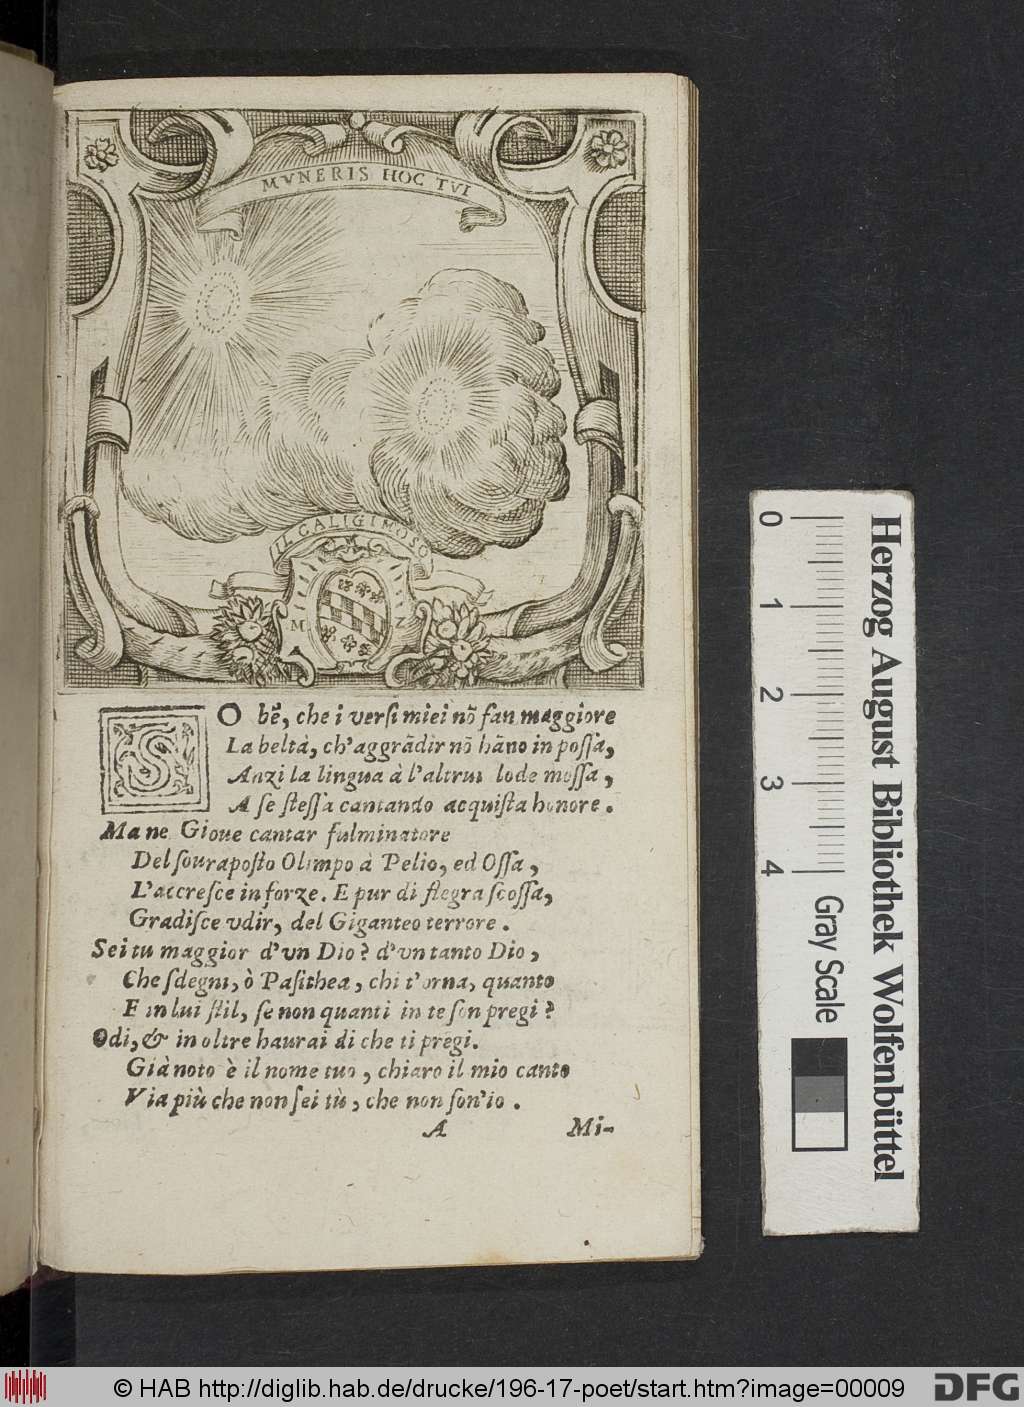 MVNERIS HOC TVI
IL CALIGINOSO
M Z
SO bẽ, che i verſi miei nõ fan maggiore
La beltà, ch'aggrãdir nõ hãno in poſſa,
Anzi la lingua à l'altrui lode moſſa,
A ſe ſteſſa cantando acquiſta honore.
Ma ne Gioue cantar fulminatore
Del ſourapoſto Olimpo à Pelio, ed Oſſa,
L'accreſce in forze. E pur di flegra ſcoſſa,
Gradiſce vdir, del Giganteo terrore.
Sei tu maggior d'vn Dio? d'vn tanto Dio,
Che ſdegni, ò Paſithea, chi t'orna, quanto
E in lui ſtil, ſe non quanti in te ſon pregi?
Odi, & in oltre haurai di che ti pregi.
Già noto è il nome tuo, chiaro il mio canto
Via più che non ſei tù, che non ſon'io.
A Mi-
Herzog August Bibliothek Wolfenbüttel
0 1 2 3 4 Gray Scale
© HAB http://diglib.hab.de/drucke/196-17-poet/start.htm?image=00009
DFG